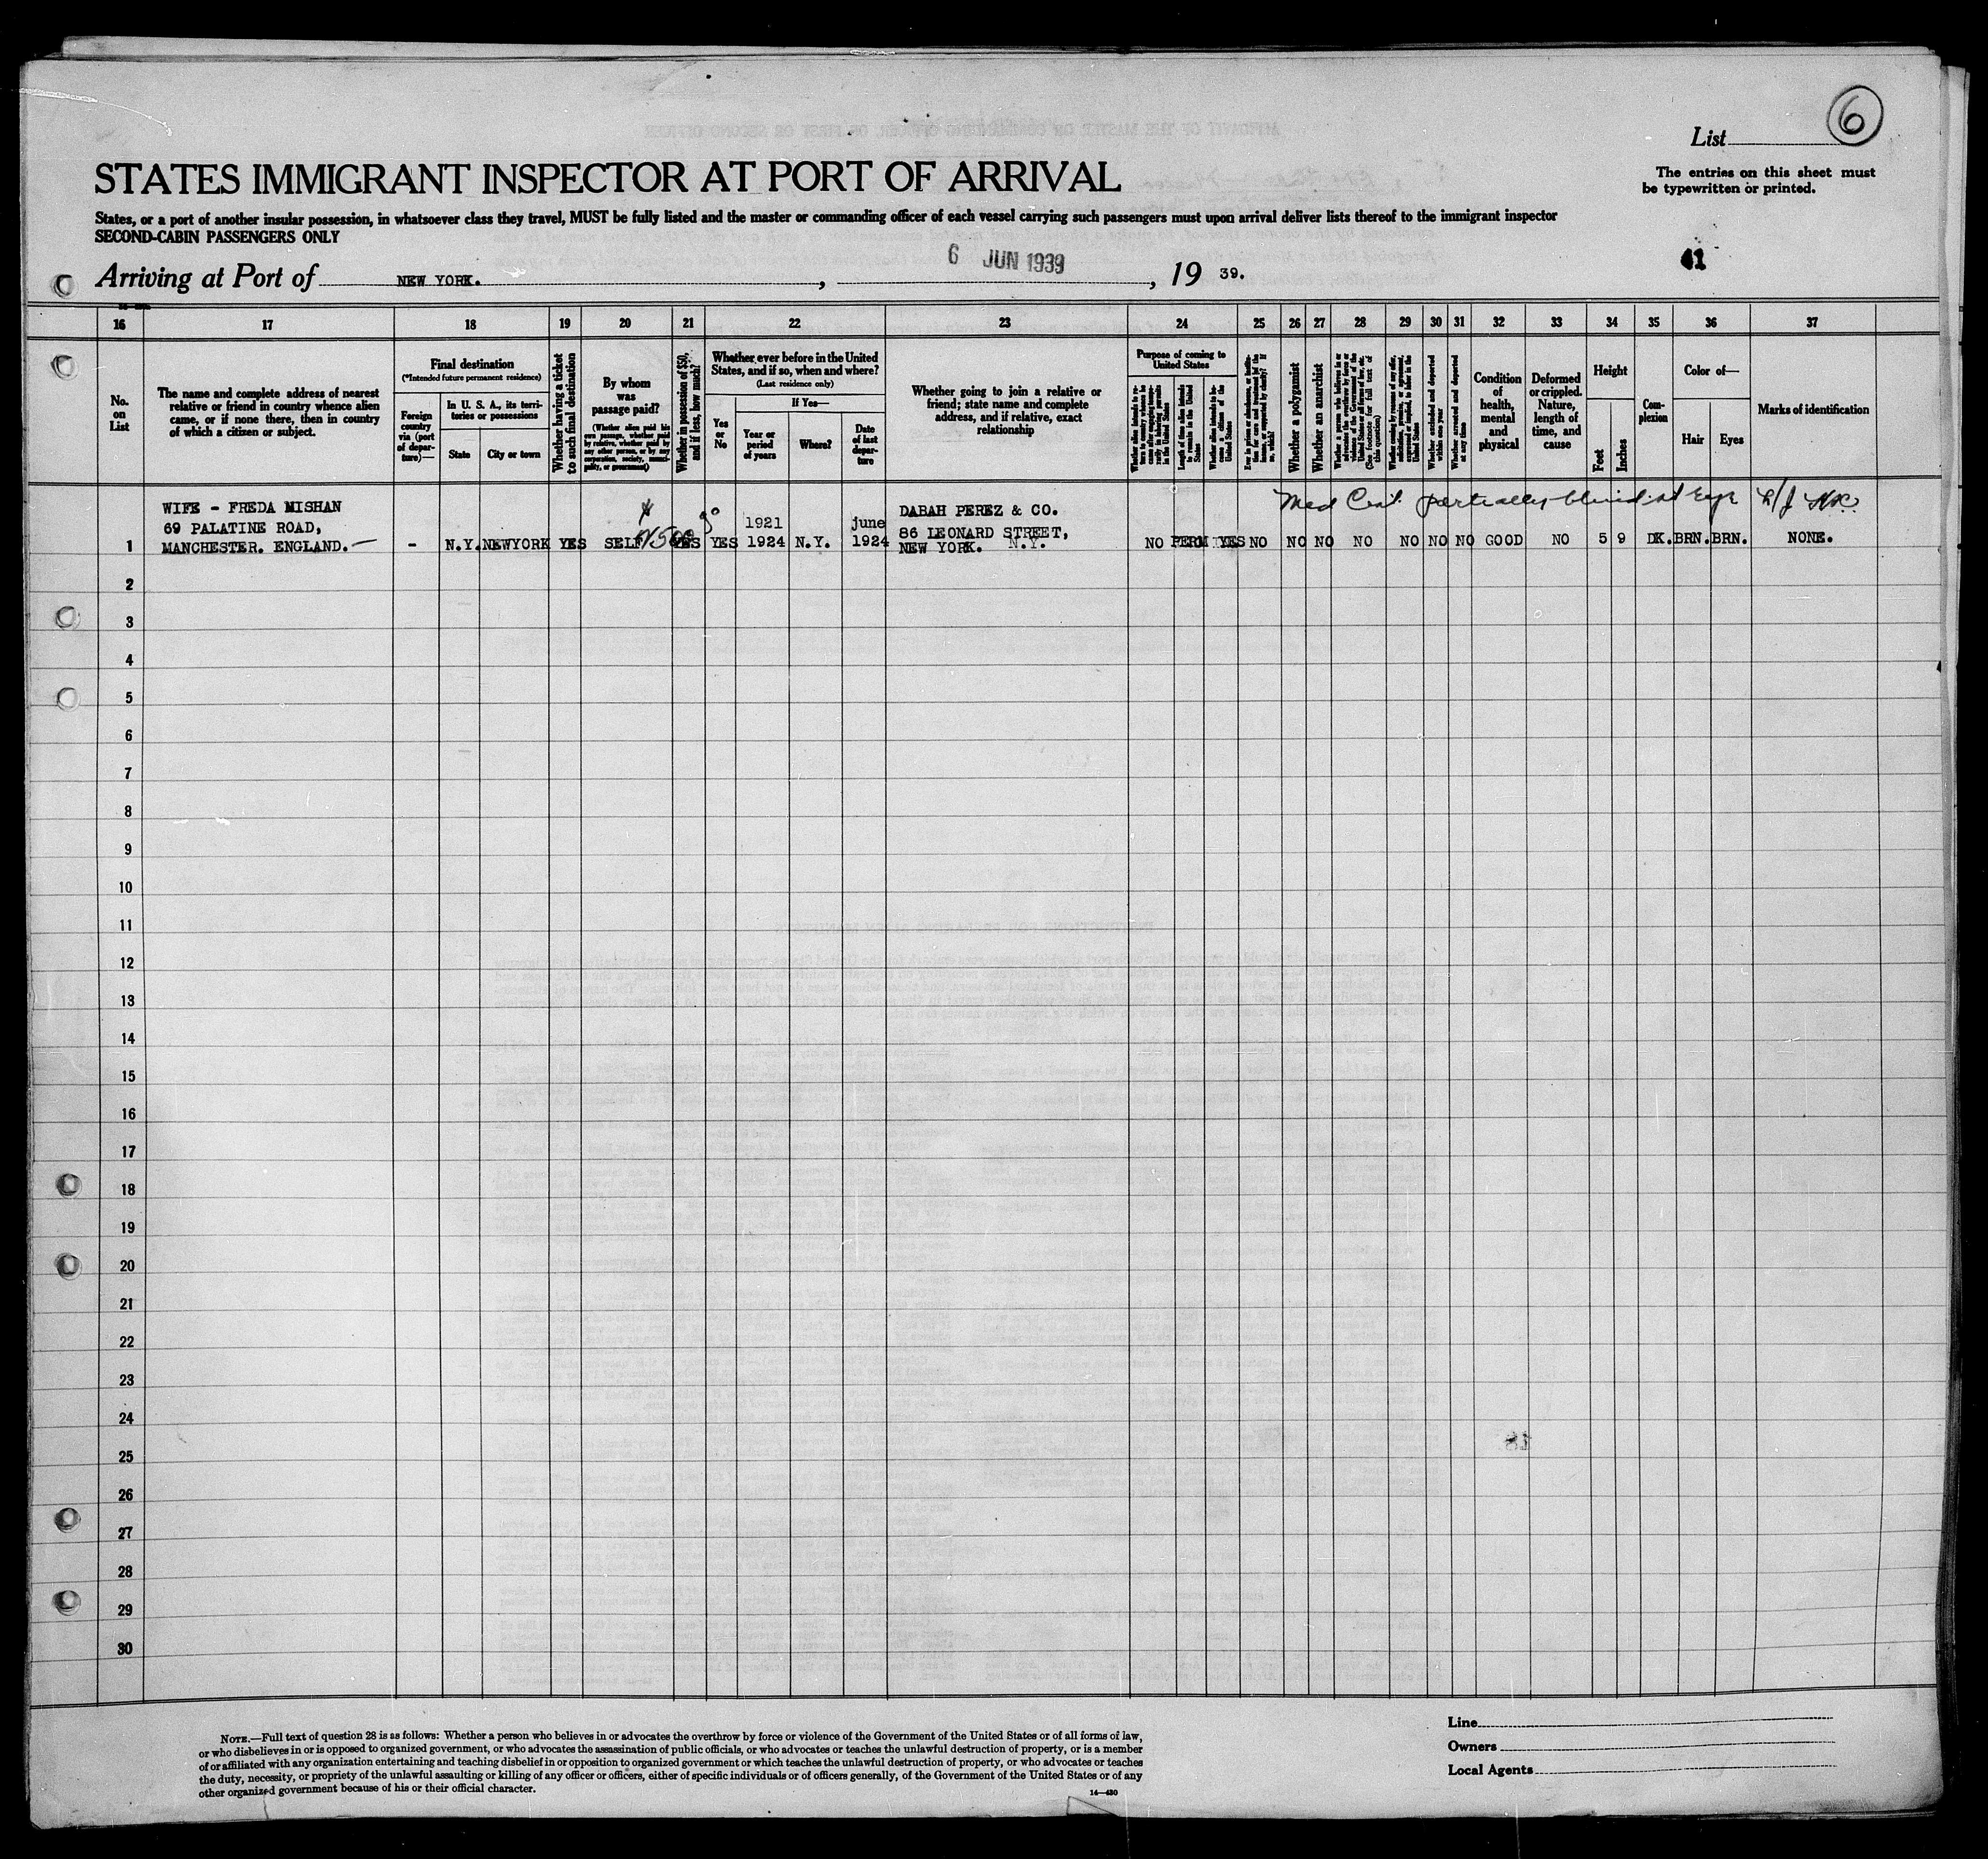 List 6
STATES IMMIGRANT INSPECTOR AT PORT OF ARRIVAL
The entries on this sheet must
be typewritten or printed.
States, or a port of another insular possession, in whatsoever class they travel, MUST be fully listed and the master or commanding officer of each vessel carrying such passengers must upon arrival deliver lists thereof to the immigrant inspector
SECOND-CABIN PASSENGERS ONLY
41
Arriving at Port of NEW YORK. , 6 JUN 1939 , 19 39.
16 17 18 19 20 21 22 23 24 25 26 27 28 29 30 31 32 33 34 35 36 37
No.
on
List
The name and complete address of nearest
relative or friend in country whence alien
came, or if none there, then in country
of which a citizen or subject.
Final destination
(*Intended future permanent residence)
Foreign
country
via (port
of depar-
ture)—
In U. S. A., its terri-
tories or possessions
State
City or town
Whether having a ticket
to such final destination
By whom
was
passage paid?
(Whether alien paid his
own passage, whether paid
by relative, whether paid by
any other person, or by any
corporation, society, munici-
pality, or government)
Whether in possession of $50,
and if less, how much?
Whether ever before in the United
States, and if so, when and where?
(Last residence only)
Yes
or
No
If Yes—
Year or
period
of years
Where?
Date
of last
depar-
ture
Whether going to join a relative or
friend; state name and complete
address, and if relative, exact
relationship
Purpose of coming to
United States
Length of time alien intends
to remain in the United
States
Whether alien intends to be-
come a citizen of the
United States
Whether a polygamist
Whether an anarchist
(See footnote for full text of
this question)
Whether excluded and deported
within one year
Whether arrested and deported
at any time
Condition
of
health,
mental
and
physical
Deformed
or crippled.
Nature,
length of
time, and
cause
Height
Feet
Inches
Com-
plexion
Color of—
Hair
Eyes
Marks of identification
Med Cert. partially blind
WIFE - FREDA MISHAN
69 PALATINE ROAD,
MANCHESTER. ENGLAND.
1 - N.Y. NEWYORK YES SELF $ YES YES 1921 1924 N.Y. june 1924
DABAH PEREZ & CO.
86 LEONARD STREET,
NEW YORK. N.Y.
NO PERM YES NO NO NO NO NO NO NO GOOD NO 5 9 DK. BRN. BRN. NONE.
2
3
4
5
6
7
8
9
10
11
12
13
14
15
16
17
18
19
20
21
22
23
24
25
26
27
28
29
30
NOTE.—Full text of question 28 is as follows: Whether a person who believes in or advocates the overthrow by force or violence of the Government of the United States or of all forms of law,
or who disbelieves in or is opposed to organized government, or who advocates the assassination of public officials, or who advocates or teaches the unlawful destruction of property, or is a member
of or affiliated with any organization entertaining and teaching disbelief in or opposition to organized government or which teaches the unlawful destruction of property, or who advocates or teaches
the duty, necessity, or propriety of the unlawful assaulting or killing of any officer or officers, either of specific individuals or of officers generally, of the Government of the United States or of any
other organized government because of his or their official character.
14—430
Line
Owners
Local Agents